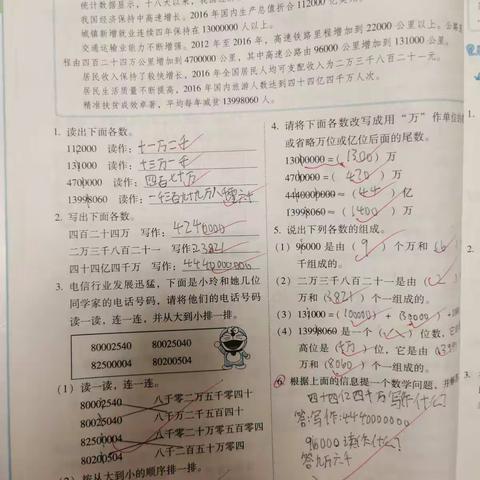 统计数据显示，十八大以来，我国
我国经济保持中高速增长。2016 年国内生产总值折合 112000 亿美
城镇新增就业连续四年保持在 13000000 人以上。
交通运输业能力不断增强。2012 年至 2016 年，高速铁路里程增加到 22000 公里以上。公路
程由四百二十四万公里增加到 4700000 公里，其中高速公路由 96000 公里增加到 131000 公里。
居民收入保持了较快增长，2016 年全国居民人均可支配收入为二万三千八百二十一元。
居民生活质量不断提高，2016 年国内旅游人数达到四十四亿四千万人次。
精准扶贫成效卓著，平均每年减贫 13998060 人。
1. 读出下面各数。
112000 读作：十一万二千
131000 读作：十三万一千
4700000 读作：四百七十万
13998060 读作：一千三百九十九万八千零六十
2. 写出下面各数。
四百二十四万 写作：4240000
二万三千八百二十一 写作：23821
四十四亿四千万 写作：4440000000
3. 电信行业发展迅猛，下面是小玲和她几位
同学家的电话号码，请将他们的电话号码
读一读，连一连，并从大到小排一排。
80002540 80025040
82500004 80200504
(1) 读一读，连一连。
80002540 八千零二万五千零四十
80025040 八千万二千五百四十
82500004 八千零二十万零五百零四
80200504 八千二百五十万零四
按从大到小的顺序排一排。
4. 请将下面各数改写成用“万”作单位的
或省略万位或亿位后面的尾数。
13000000=(1300) 万
4700000=(470) 万
4440000000≈(44) 亿
13998060≈(1400) 万
5. 说出下列各数的组成。
(1) 96000 是由 (9) 个万和 (6)
千组成的。
(2) 二万三千八百二十一是由 (2)
万和 (3821) 个一组成的。
(3) 131000=(100000)+(30000)+
(4) 13998060 是一个 (八) 位数，它
高位是 (千万) 位，它是由 (1399)
万和 (8060) 个一组成的。
6. 根据上面的信息提一个数学问题，并解
四十四亿四千万写作什么？
答：写作：4440000000
96000读作什么？
答九万六千